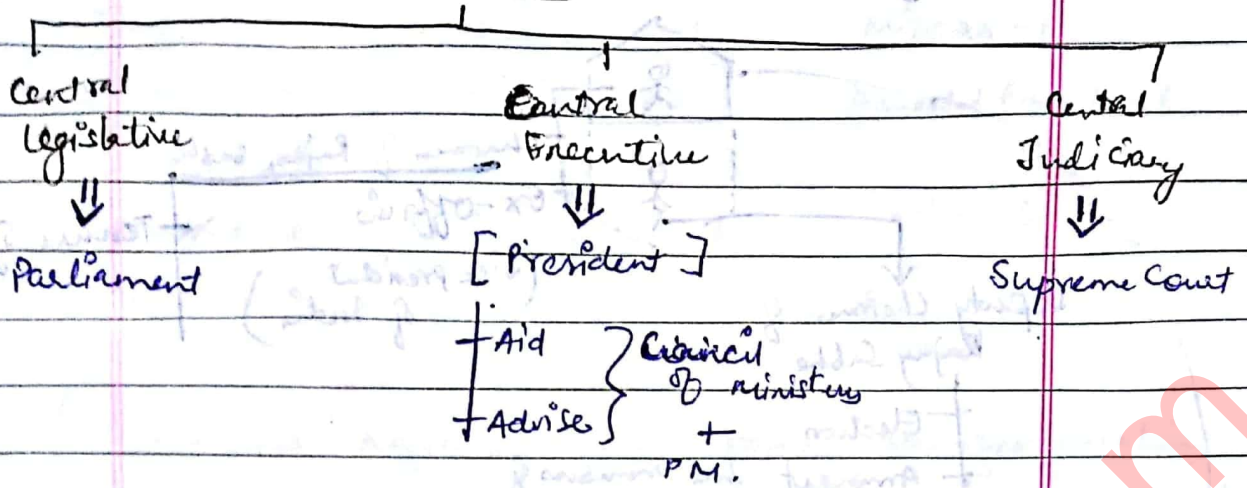 Central
Legislative
⇓
Parliament
Central
Executive
⇓
[President]
Aid
Advise
Council
of ministers
+
PM.
Central
Judiciary
⇓
Supreme Court